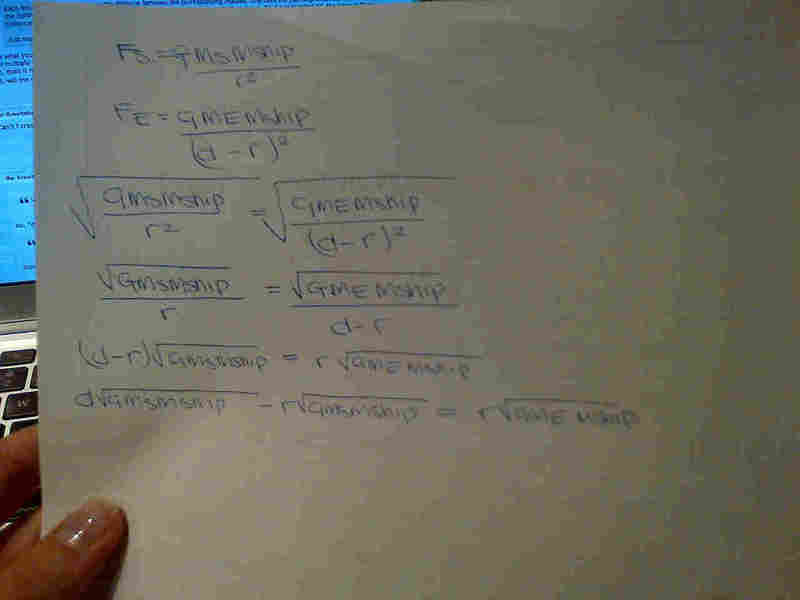 Fs = G MsMship / r²
FE = GMEMship / (d-r)²
√(GMsMship / r²) = √(GMEMship / (d-r)²)
√GMsMship / r = √GMEMship / d-r
(d-r)√GMsMship = r√GMEMship
d√GMsMship - r√GMsMship = r√GMEMship